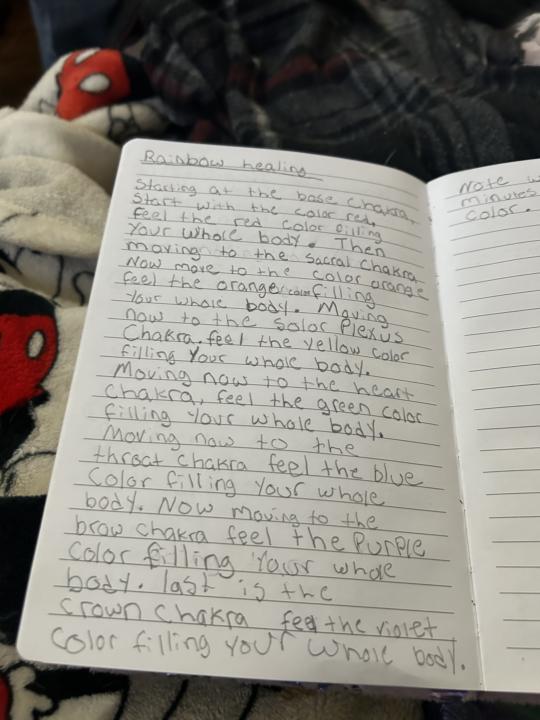 Rainbow healing
Starting at the base chakra,
Start with the color red,
feel the red color filling
Your whole body. Then
moving to the sacral chakra
Now move to the color orange
feel the orange color filling
Your whole body. Moving
now to the solar Plexus
Chakra. feel the yellow color
filling Your whole body.
Moving now to the heart
Chakra, feel the green color
filling Your whole body.
Moving now to the
throat chakra feel the blue
Color filling Your whole
body. Now moving to the
brow chakra feel the Purple
Color filling Your whole
body. last is the
crown Chakra feel the violet
Color filling your whole body.
Note
minutes
color.